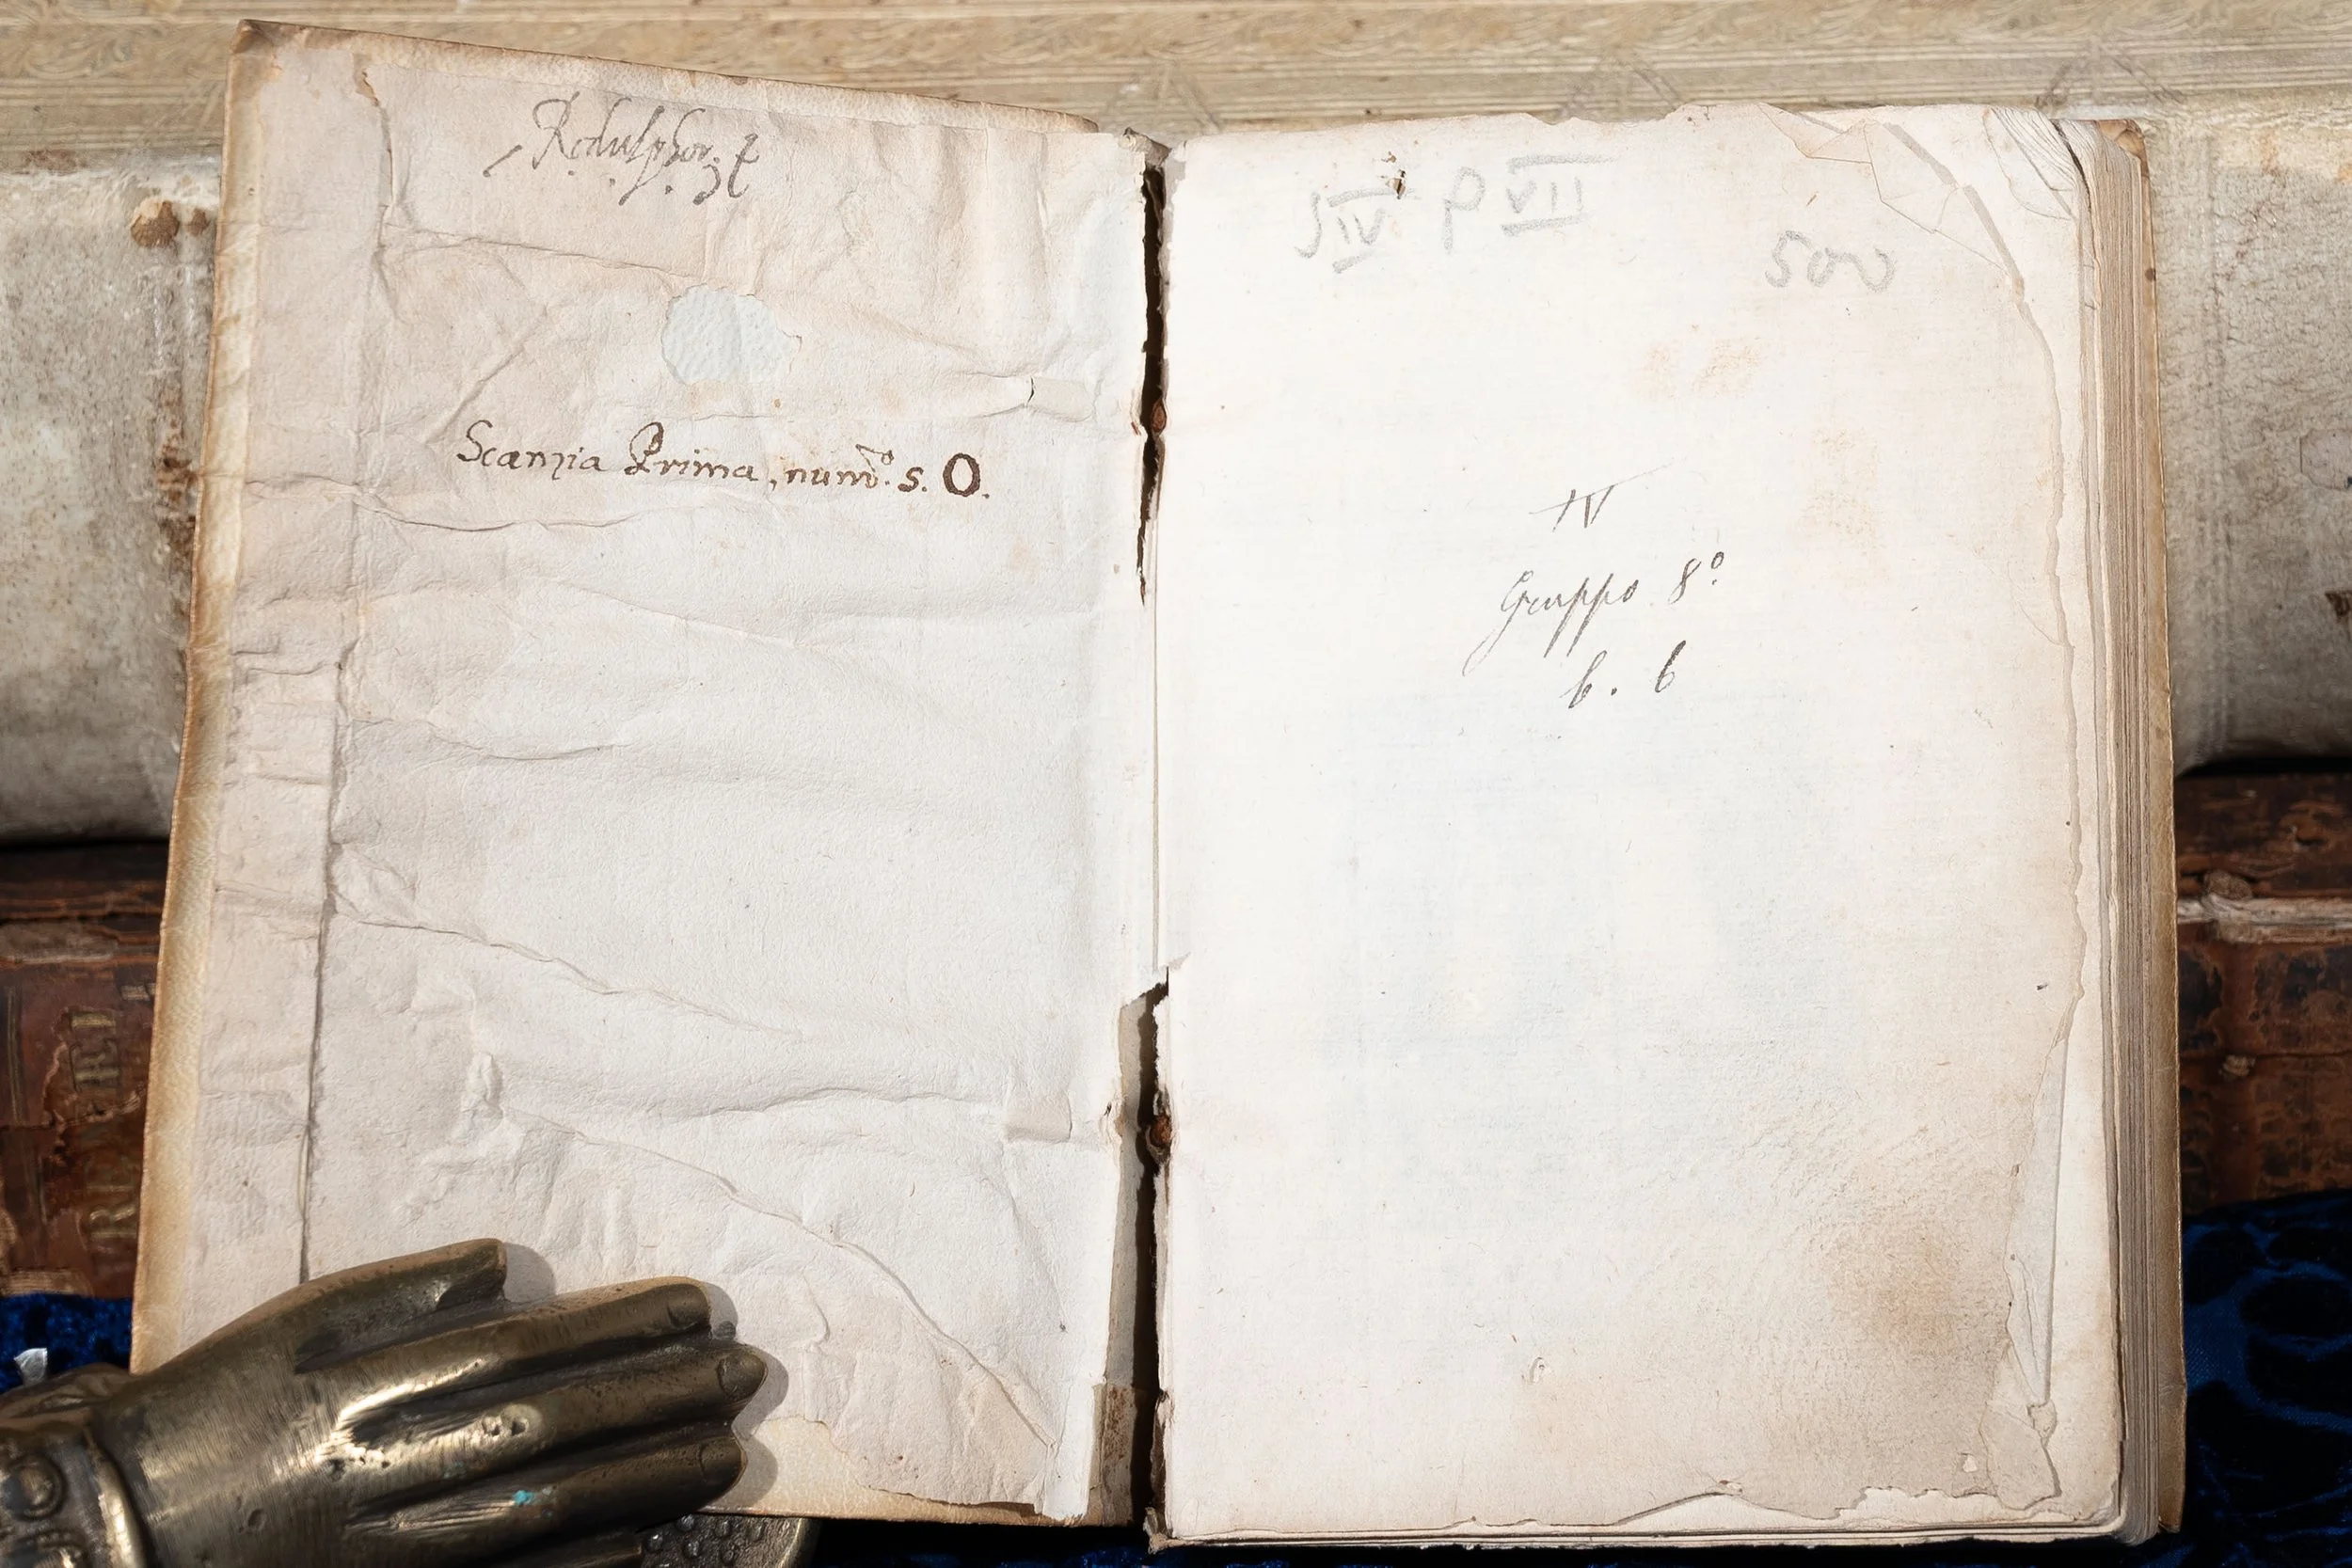 Rodulphor.
Scanzia Prima, num.º s. O.
IV VII
500
IV
Gruppo 8º
b. 6